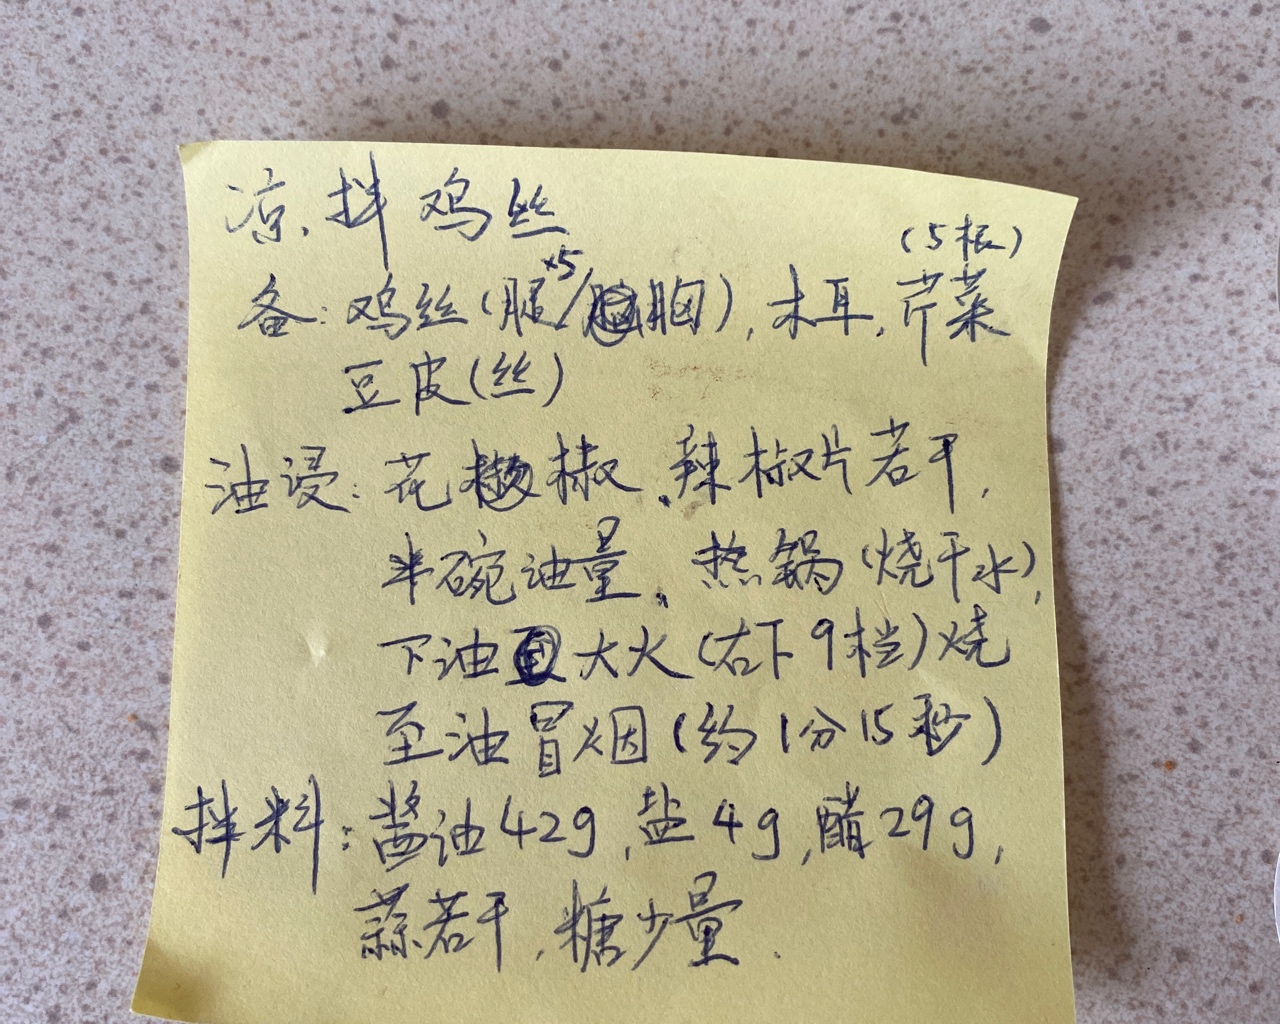 凉拌鸡丝
(5根)
备:鸡丝(腿×5/胸),木耳,芹菜
豆皮(丝)
油浸:花椒、辣椒片若干,
半碗油量、热锅(烧干水),
下油大火(右下9档)烧
至油冒烟(约1分15秒)
拌料:酱油42g,盐4g,醋29g,
蒜若干,糖少量.